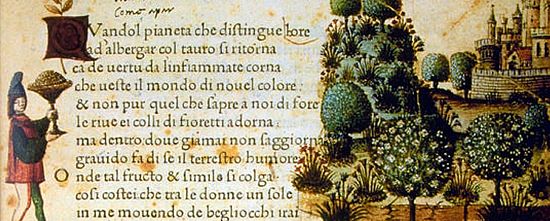 Como apar
QVandol pianeta che distingue lhore
ad'albergar col tauro si ritorna
ca de uertu da linfiammate corna
che ueste il mondo di nouel colore:
& non pur quel che s'apre a noi di fore
le riue ei colli di fioretti adorna:
ma dentro doue giamai non saggiorna
grauido fa di se il terrestro humore
Onde tal fructo & simile si colga
cosi costei che tra le donne un sole
in me mouendo de begliocchi irai